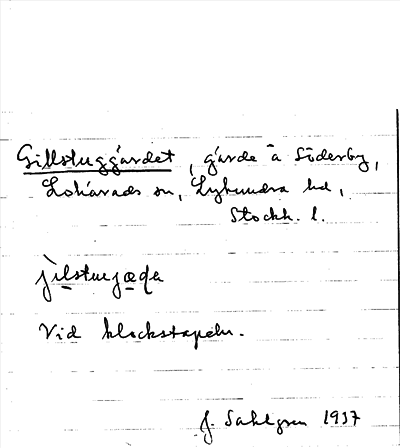 Gillstuggärdet, gärde å Söderby,
Lohärads sn, Lyhundra hd,
Stockh. l.
jìlstuejæda
Vid klockstapeln.
J. Sahlgren 1937